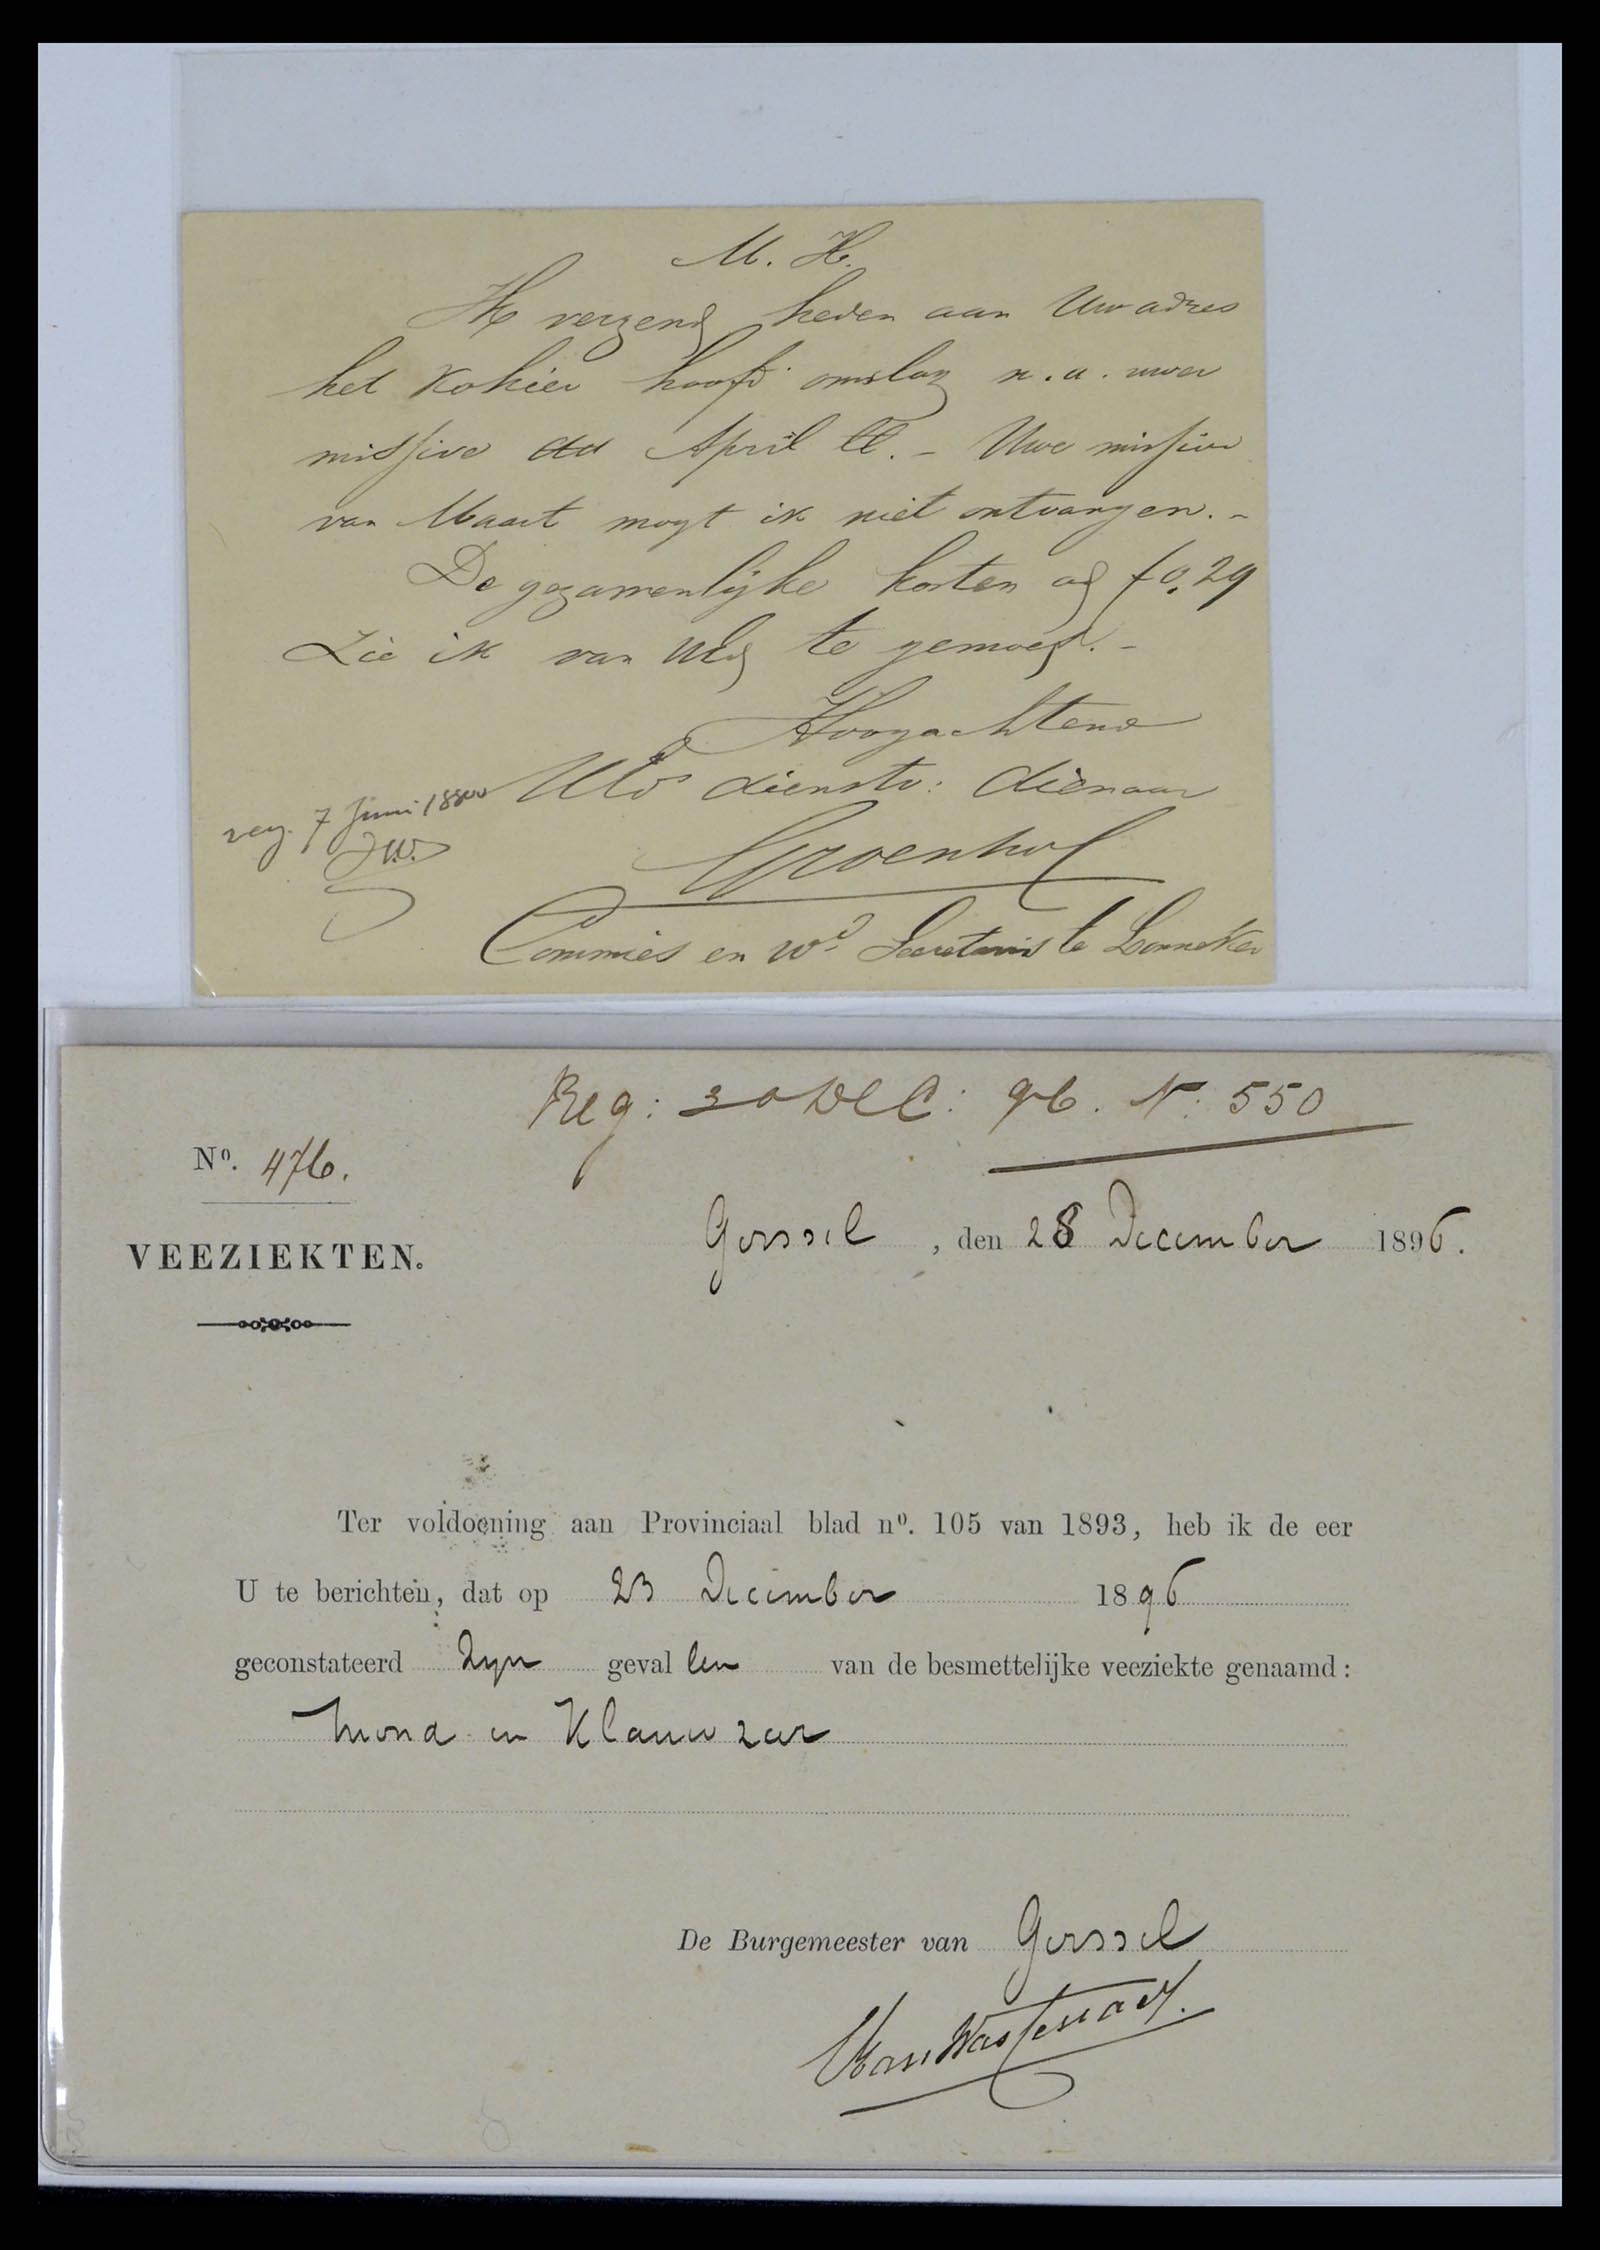 M. H.
Ik verzend heden aan Uw adres
het Kohier hoofd: omslag n.a. uwer
missive dd April ll. – Uwe missive
van Maart mogt ik niet ontvangen. –
De gezamenlijke kosten ad f 0,29
Zie ik van UEd te gemoed. –
Hoogachtend
UEds dienstv: dienaar
Groenhof
reg. 7 Juni
Commies en wd Secretaris te Lonneker
Reg: 30 DEC: 96. No: 550
No. 476.
VEEZIEKTEN.
Gorssel, den 28 December 1896.
Ter voldoening aan Provinciaal blad no. 105 van 1893, heb ik de eer
U te berichten, dat op 23 December 1896
geconstateerd zyn gevallen van de besmettelijke veeziekte genaamd:
Mond en Klauwzeer
De Burgemeester van Gorssel